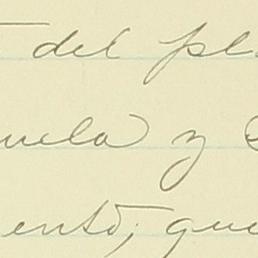 del pl
uela y
ento, que